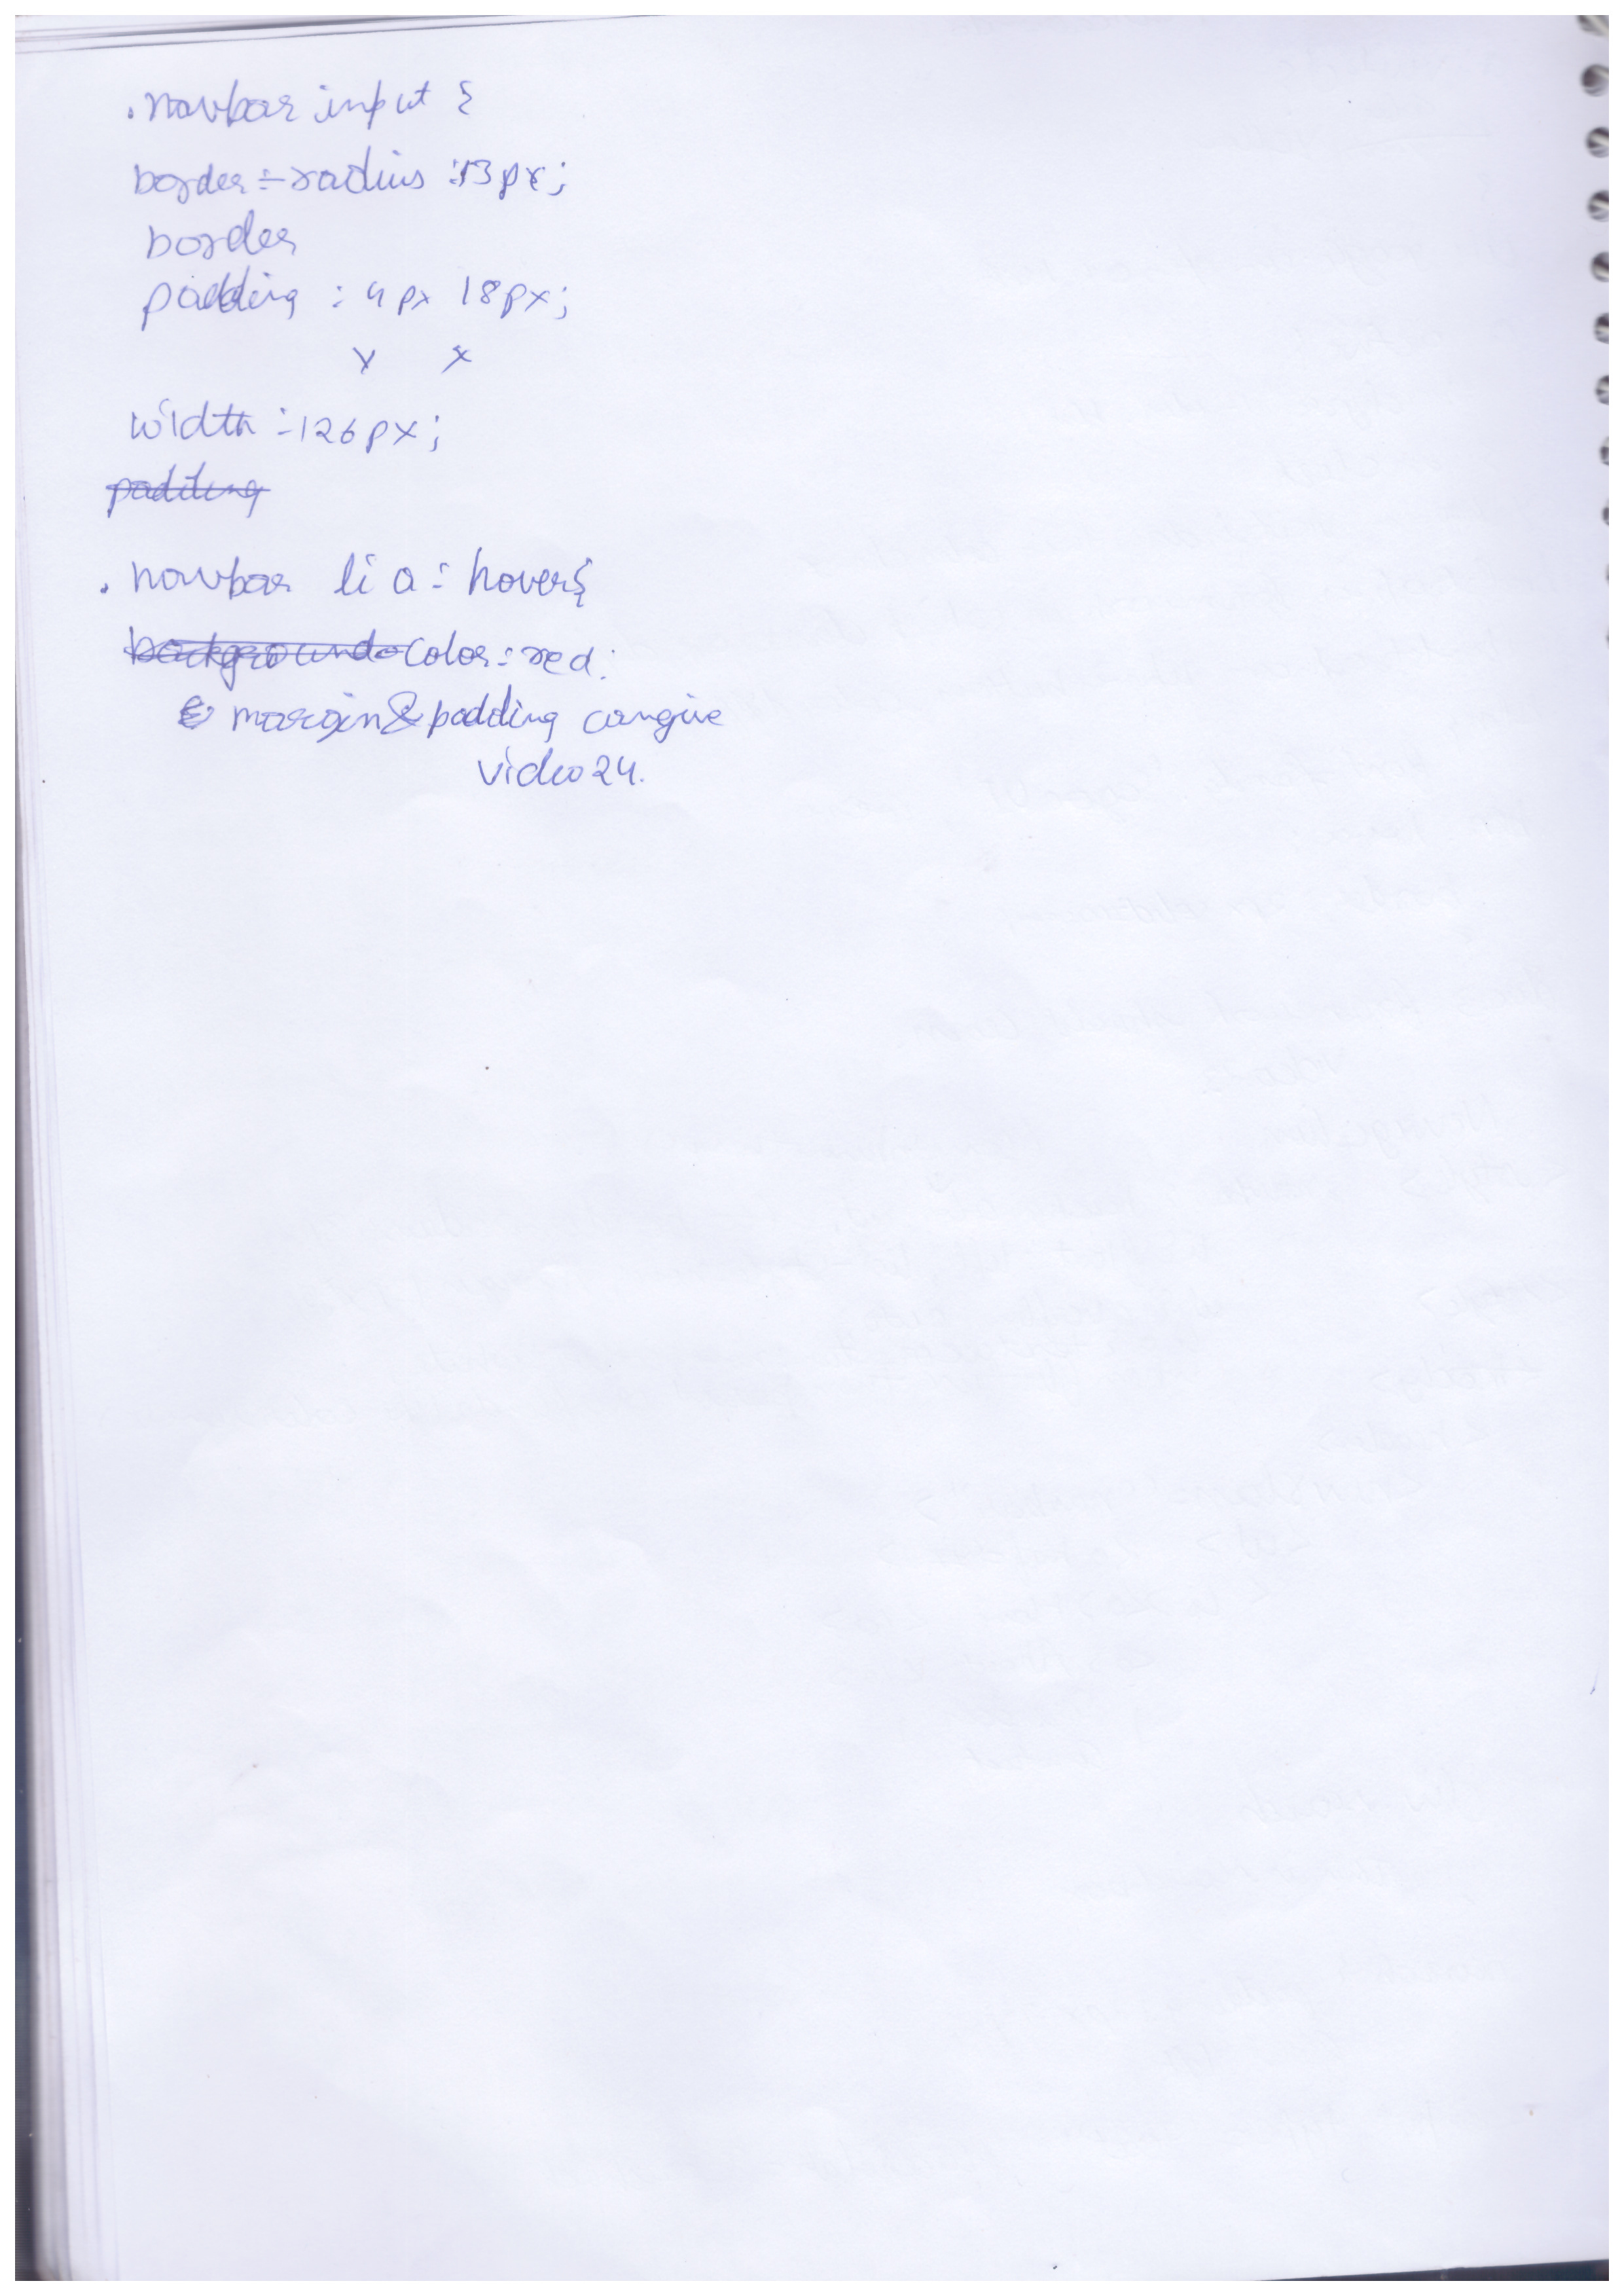 .navbar input {
border-radius : 13px;
border
padding : 4px 18px;
y x
width : 126px;
padding
. navbar li a : hover{
background color : red;
margin & padding can give
video 24.